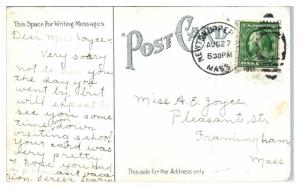 This Space For Writing Messages
POST CA
Dear Miss Joyce,
Very sorry
not to see you
the day you
went by but will
expect to
see you some
time down
visiting school
your card was
very pretty
I hope you had
pleasant vaca
tion. Teresa
NEWTON UPPER
AUG 27
530PM
MASS.
Miss A. E. Joyce
Pleasant Str
Framingham
Mass
This side for the Address only.